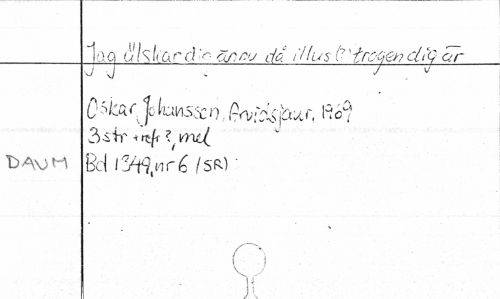 Jag älskar dig ännu då illus(?) trogen dig är
Oskar Johanssen, Arvidsjaur, 1969
3 str + refr?, mel
DAUM Bd 1349, nr 6 (SR)